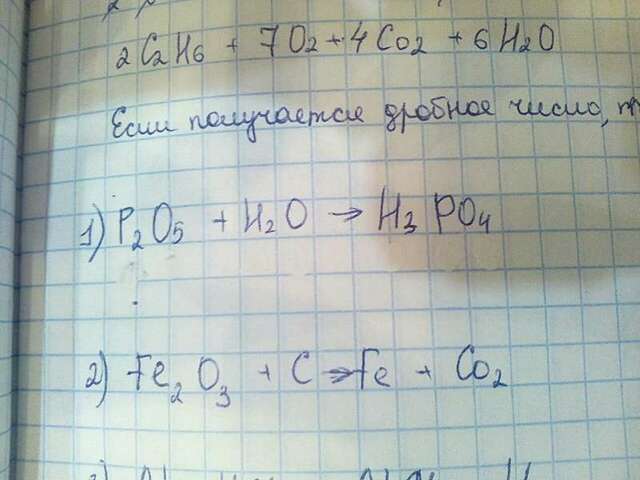 2C2H6 + 7O2 + 4CO2 + 6H2O
Если получается дробное число,
1) P2O5 + H2O → H3PO4
2) Fe2O3 + C → Fe + CO2